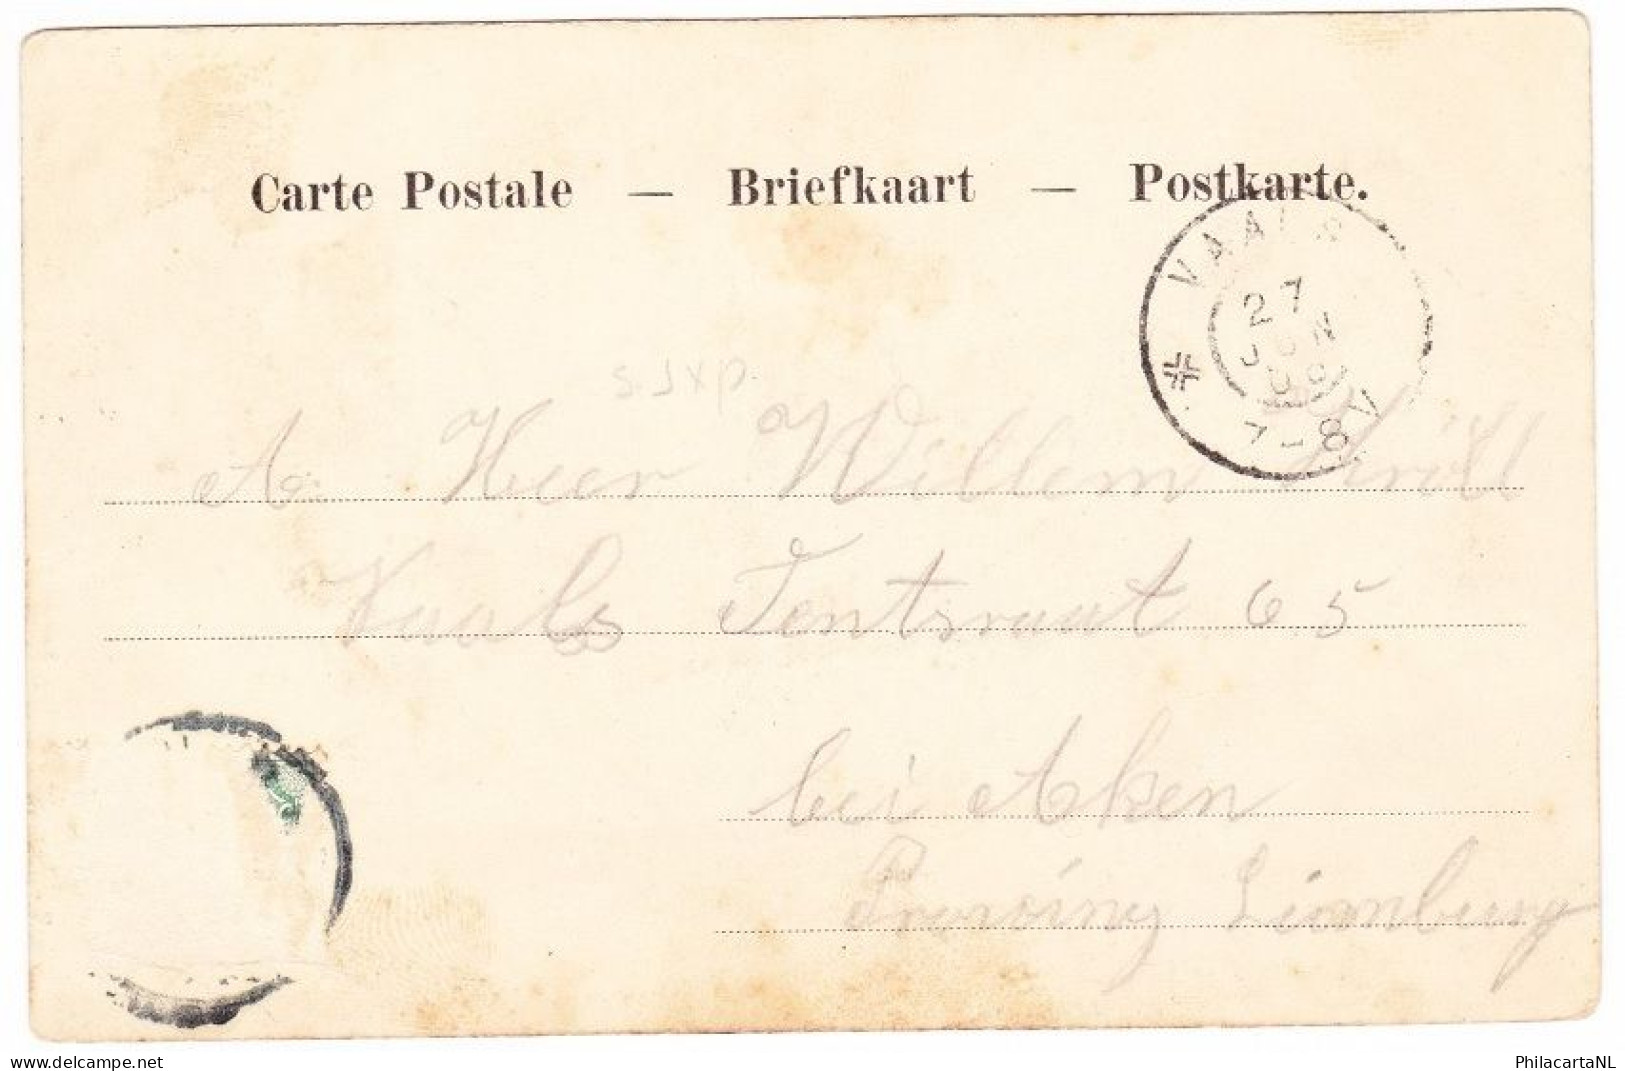 Carte Postale — Briefkaart — Postkarte.
VAALS
27
JUN
7-8 V
A Heer Willem
Vaals Tentsraat 65
bei Aken
Provinz Limburg
www.delcampe.net
PhilacartaNL